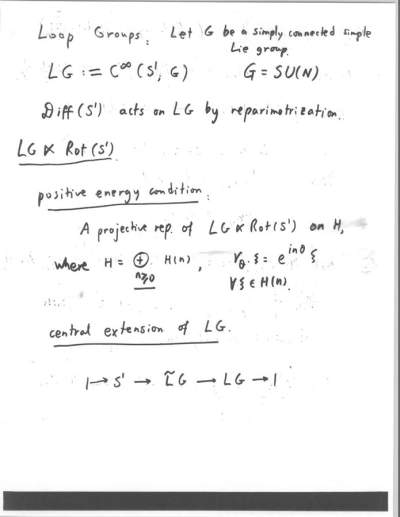 Loop Groups: Let G be a simply connected simple
Lie group.
LG := C^∞(S¹, G)    G = SU(N)
Diff(S¹) acts on LG by reparimetrization.
LG ⋊ Rot(S¹)
positive energy condition:
A projective rep. of LG ⋊ Rot(S¹) on H,
where H = ⊕_{n≥0} H(n), r_θ · ξ = e^{inθ} ξ
∀ξ ∈ H(n).
central extension of LG.
1 → S¹ → L̃G → LG → 1